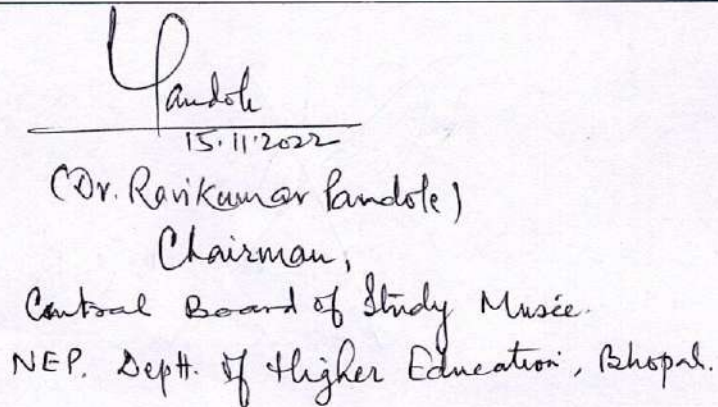 Pandole
15.11.2022
(Dr. Ravikumar Pandole)
Chairman,
Central Board of Study Music.
NEP. Deptt. of Higher Education, Bhopal.